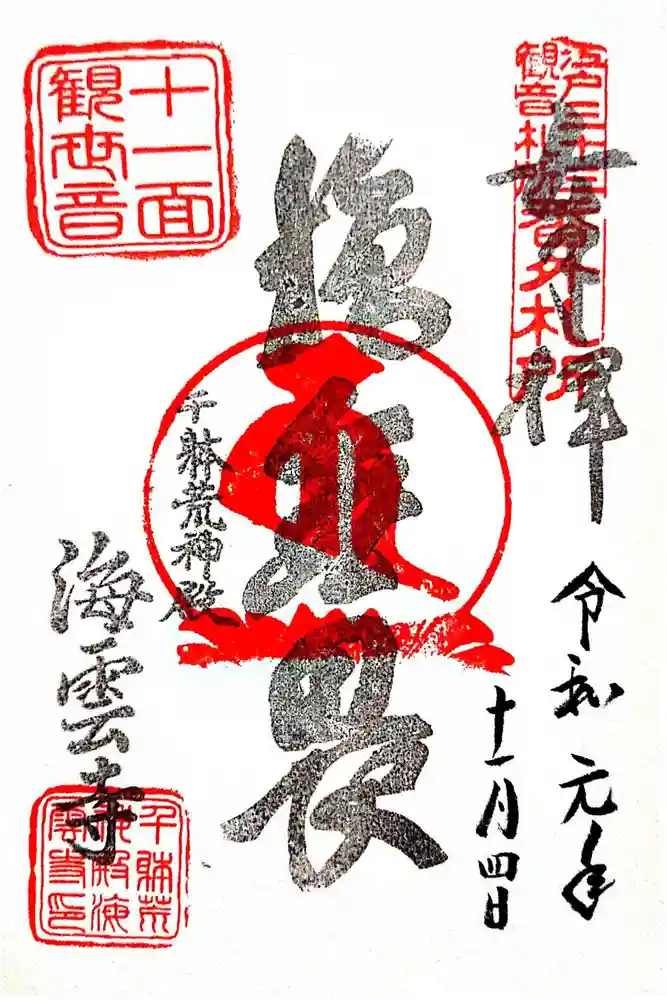 江戸三十三
観音札所
番外札所
奉拝
令和元年
十一月四日
施無畏
千躰荒神殿
十一面
観世音
海雲寺
千躰荒
神殿海
雲寺印